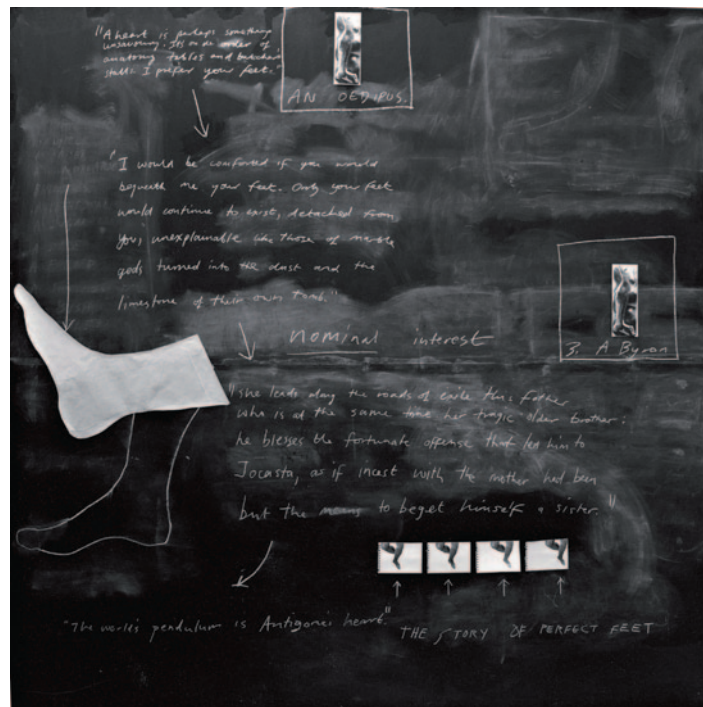 "A heart is perhaps something
unsavoury. It's on the order of
anatomy tables and butcher's
stalls. I prefer your feet."
AN OEDIPUS.
"I would be comforted if you would
bequeath me your feet. Only your feet
would continue to exist, detached from
you, unexplainable like those of marble
gods turned into the dust and the
limestone of their own tomb."
nominal interest
3. A Byron
"She leads along the roads of exile this father
who is at the same time her tragic older brother:
he blesses the fortunate offense that led him to
Jocasta, as if incest with the mother had been
but the means to beget himself a sister."
"The world's pendulum is Antigone's heart."
THE STORY OF PERFECT FEET